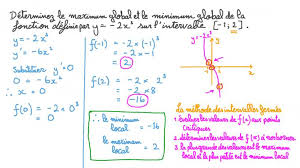 Déterminez le maximum global et le minimum global de la
fonction définie par y = -2x³ sur l'intervalle [-1; 2].
y = -2x³
y' = -6x²
Substituer y' = 0
0 = -6x²
∴ x = 0
f(0) = -2 × 0³
= 0
f(-1) = -2 × (-1)³
= -2 × (-1)
= 2
f(2) = -2 × 2³
= -2 × 8
= -16
∴ le minimum
local = -16
le maximum
local = 2
La méthode des intervalles fermés
1. évaluer les valeurs de f(x) aux points
critiques
2. déterminer les valeurs de f(x)
3. la plus grande valeur est le maximum
local et la plus petite est le minimum local.